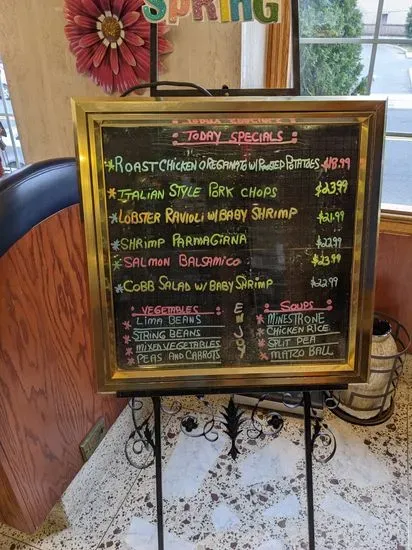 SPRING
TODAY SPECIALS
ROAST CHICKEN OREGANATO W/ ROASTED POTATOES $18.99
ITALIAN STYLE PORK CHOPS $23.99
LOBSTER RAVIOLI W/ BABY SHRIMP $21.99
SHRIMP PARMAGIANA $22.99
SALMON BALSAMICO $23.99
COBB SALAD W/ BABY SHRIMP $22.99
VEGETABLES
LIMA BEANS
STRING BEANS
MIXED VEGETABLES
PEAS AND CARROTS
ENJOY
SOUPS
MINESTRONE
CHICKEN RICE
SPLIT PEA
MATZO BALL